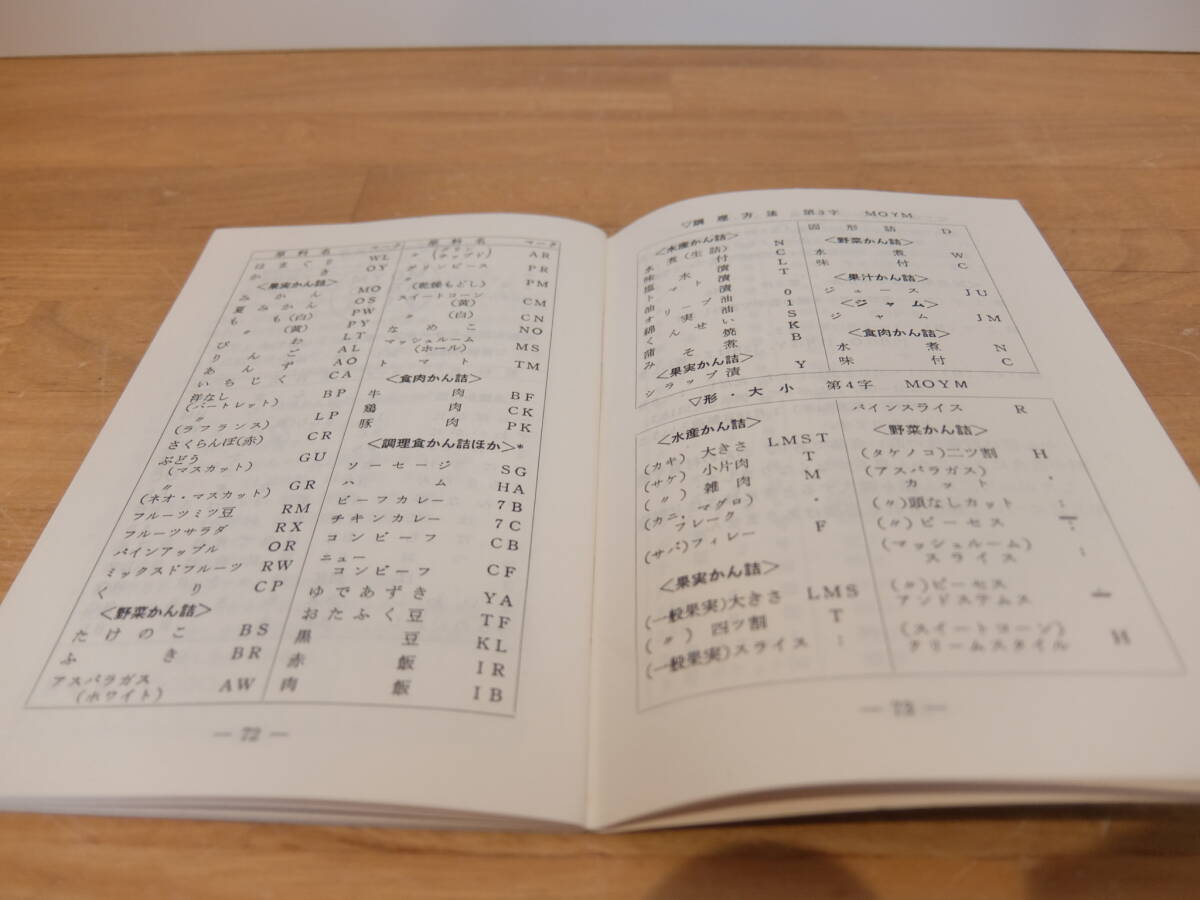 原料名 マーク
はまぐり WL
かき OY
<果実かん詰>
みかん MO
夏みかん OS
もも(白) PW
〃(黄) PY
びわ LT
りんご AL
あんず AO
いちじく CA
洋なし
(バートレット) BP
〃
(ラフランス) LP
さくらんぼ(赤) CR
ぶどう
(マスカット) GU
〃
(ネオ・マスカット) GR
フルーツミツ豆 RM
フルーツサラダ RX
パインアップル OR
ミックスドフルーツ RW
くり CP
<野菜かん詰>
たけのこ BS
ふき BR
アスパラガス
(ホワイト) AW
原料名 マーク
AR
グリンピース PR
〃
(乾燥もどし) PM
スイートコーン
(黄) CM
〃(白) CN
なめこ NO
マッシュルーム
(ホール) MS
トマト TM
<食肉かん詰>
牛肉 BF
鶏肉 CK
豚肉 PK
<調理食かん詰ほか>*
ソーセージ SG
ハム HA
ビーフカレー 7B
チキンカレー 7C
コンビーフ CB
ニュー
コンビーフ CF
ゆであずき YA
おたふく豆 TF
黒豆 KL
赤飯 IR
肉飯 IB
― 72 ―
▽調理方法 第3字 MOYM
<水産かん詰>
水煮(生詰) N
味付 C
塩水漬 L
トマト漬 T
油漬 O
オリーブ油 1
綿実油 S
くんせい
蒲焼 K
みそ煮 B
<果実かん詰>
シラップ漬 Y
固形詰 D
<野菜かん詰>
水煮 W
味付 C
<果汁かん詰>
ジュース JU
<ジャム>
ジャム JM
<食肉かん詰>
水煮 N
味付 C
▽形・大小 第4字 MOYM
<水産かん詰>
(カキ)大きさ LMST
(サケ)小片肉 T
(〃)雑肉 M
(カニ・マグロ)
フレーク
(サバ)フィレー F
<果実かん詰>
(一般果実)大きさ LMS
(〃)四ツ割 T
(一般果実)スライス :
パインスライス R
<野菜かん詰>
(タケノコ)二ツ割 H
(アスパラガス)
カット
(〃)頭なしカット :
(〃)ピーセス
(マッシュルーム)
スライス :
(〃)ピーセス
アンドステムス
(スイートコーン)
クリームスタイル H
― 73 ―